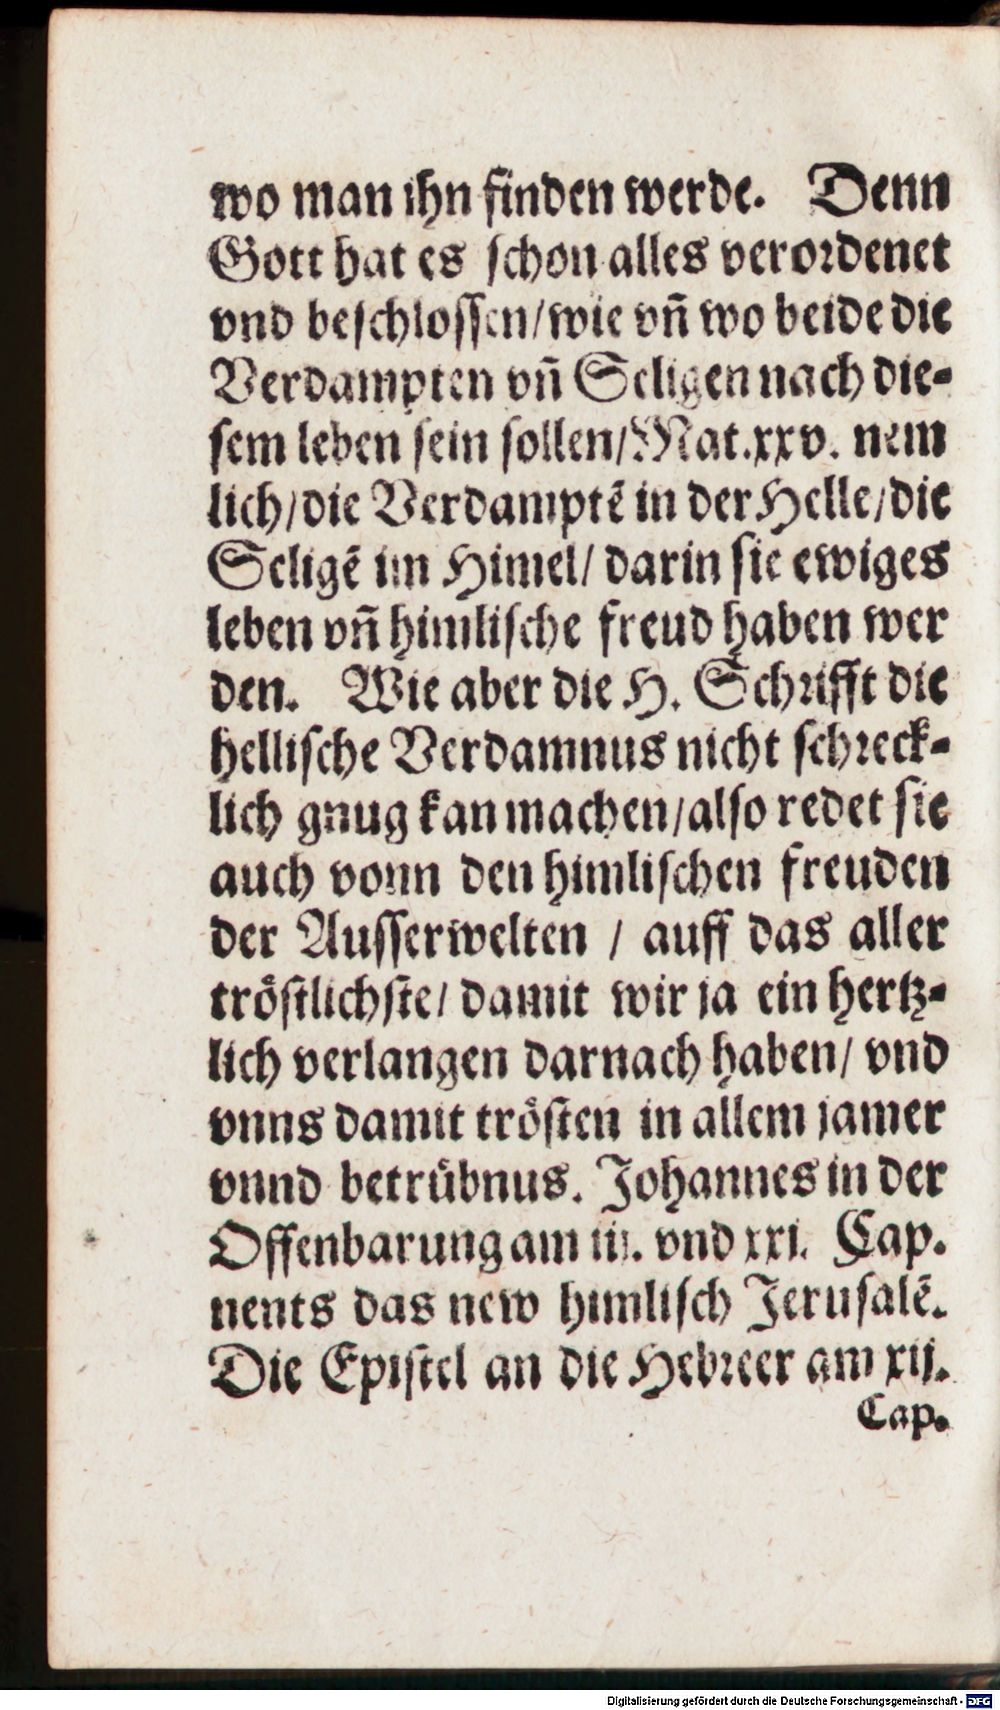 wo man ihn finden werde. Denn
Gott hat es schon alles verordenet
vnd beschlossen/wie vñ wo beide die
Verdampten vñ Seligen nach die-
sem leben sein sollen/Mat.xxv. nem
lich/die Verdamptē in der Helle/die
Seligē im Himel/ darin sie ewiges
leben vñ himlische freud haben wer
den. Wie aber die H. Schrifft die
hellische Verdamnus nicht schreck-
lich gnug kan machen/also redet sie
auch vonn den himlischen freuden
der Ausserwelten / auff das aller
tröstlichste/ damit wir ja ein hertz-
lich verlangen darnach haben/ vnd
vnns damit trösten in allem jamer
vnnd betrübnus. Johannes in der
Offenbarung am iij. vnd xxi. Cap.
nents das new himlisch Jerusalē.
Die Epistel an die Hebreer am xij.
Cap.
Digitalisierung gefördert durch die Deutsche Forschungsgemeinschaft - DFG